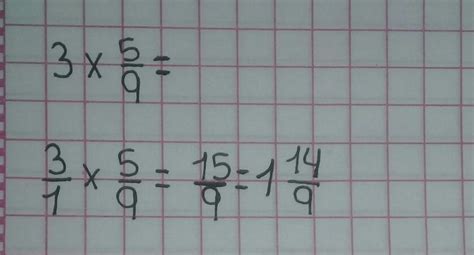 3 × 5/9 =
3/1 × 5/9 = 15/9 = 1 14/9